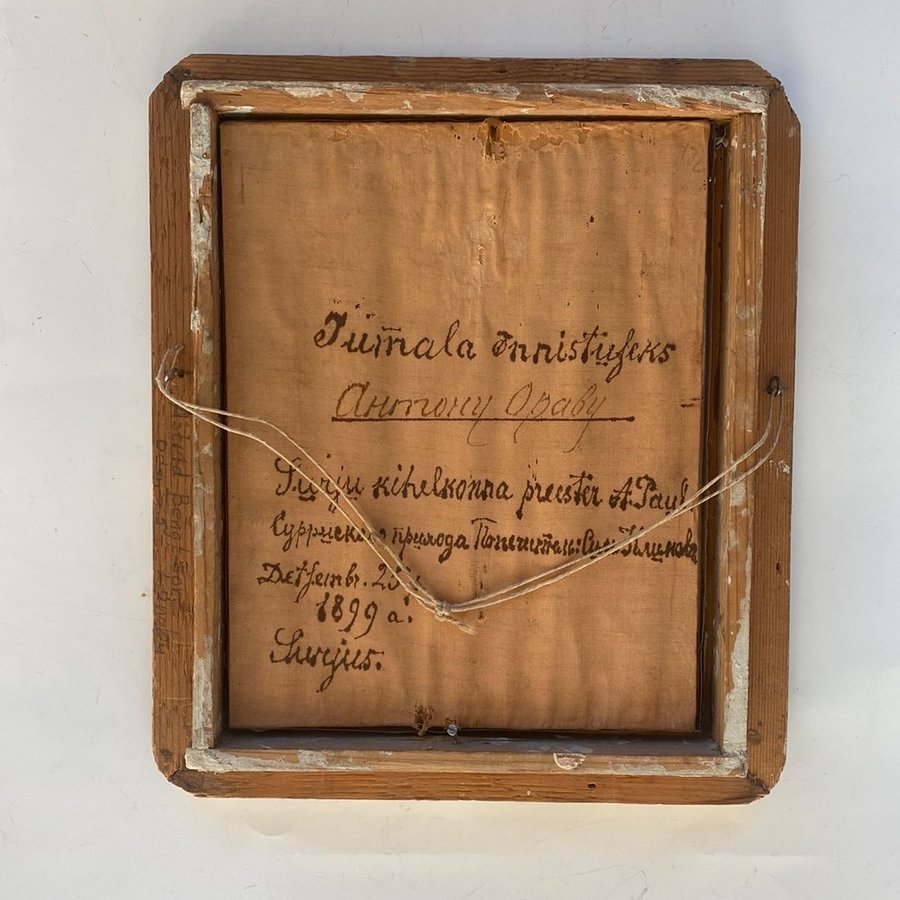 Jum̄ala önnistuseks
Антону Ораву
Surju kihelkonna preester A. Paul
Суррискаго прихода Попечител:
Detsembr. 25
1899 a.
Surjus.